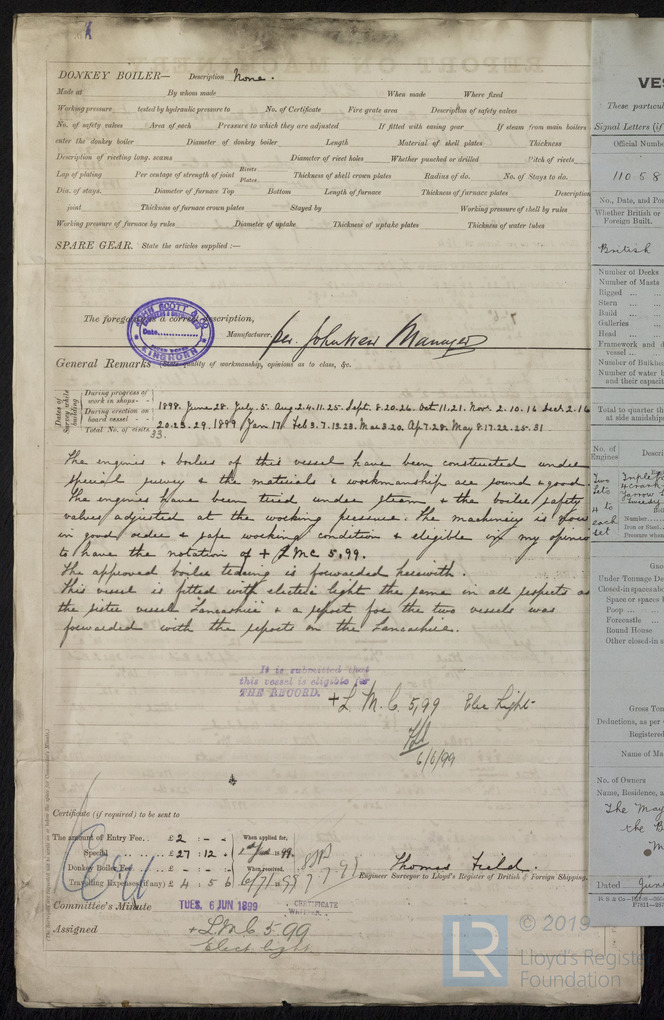 DONKEY BOILER— Description None.
Made at By whom made When made Where fixed
Working pressure tested by hydraulic pressure to No. of Certificate Fire grate area Description of safety valves
No. of safety valves Area of each Pressure to which they are adjusted If fitted with easing gear If steam from main boilers
enter the donkey boiler Diameter of donkey boiler Length Material of shell plates Thickness
Description of riveting long. seams Diameter of rivet holes Whether punched or drilled Pitch of rivets
Lap of plating Per centage of strength of joint Rivets Plates Thickness of shell crown plates Radius of do. No. of Stays to do.
Dia. of stays. Diameter of furnace Top Bottom Length of furnace Thickness of furnace plates Description
joint Thickness of furnace crown plates Stayed by Working pressure of shell by rules
Working pressure of furnace by rules Diameter of uptake Thickness of uptake plates Thickness of water tubes
SPARE GEAR. State the articles supplied :—
The foregoing is a correct description,
JOHN SCOTT & CO
KINGHORN
Manufacturer.
Manager
General Remarks (State quality of workmanship, opinions as to class, &c.
Dates of Survey while building
During progress of work in shops - 1898. June 28. July. 5. Aug 2.4.11.25 Sept. 8.20.26. Oct 11.21. Nov. 2.10.16 Dec 2.16
During erection on board vessel - 20.23.29. 1899 Jan 17. Feb 3.7.13.23. Mar 3.20. Ap 7.28. May 8.17.22.25.31
Total No. of visits 33.
The engines & boilers of this vessel have been constructed under
special survey & the materials & workmanship are sound & good.
The engines have been tried under steam & the boiler safety
valves adjusted at the working pressure. The machinery is now
in good order & safe working condition & eligible in my opinion
to have the notation of + LMC 5,99.
The approved boiler tracing is forwarded herewith.
This vessel is fitted with electric light the same in all respects as
the sister vessel Lancashire & a report for the two vessels was
forwarded with the reports on the Lancashire.
It is submitted that
this vessel is eligible for
THE RECORD.
+ L.M.C. 5,99 Elec Light
6/6/99
Certificate (if required) to be sent to
The amount of Entry Fee. . £ 2 : - : - When applied for,
Special . . . . . £ 27 : 12 . -
Donkey Boiler Fee . . . £ - : - : - When received,
Travelling Expenses (if any) £ 4 : 5 6
Thomas Field.
Engineer Surveyor to Lloyd's Register of British & Foreign Shipping.
Committee's Minute TUES. 6 JUN 1899
CERTIFICATE
WRITTEN.
Assigned + L.M.C. 5.99
Elect. light
VES
These particul
Signal Letters (if
Official Numbe
110 5 8
No., Date, and Po
Whether British or
Foreign Built.
British
Number of Decks
Number of Masts
Rigged
Stern
Build
Galleries
Head
Framework and d
vessel
Number of Bulkhe
Number of water b
and their capacit
Total to quarter th
at side amidship
No. of
Engines Descri
Two
Sets
4 to
each
set
Number
Iron or Steel
Pressure when
Gro
Under Tonnage De
Closed-in spaces abo
Space or spaces
Poop
Forecastle
Round House
Other closed-in s
Gross Ton
Deductions, as per
Registered
Name of Ma
No. of Owners
Name, Residence, a
Dated June
© 2019
LR
Lloyd's Register
Foundation